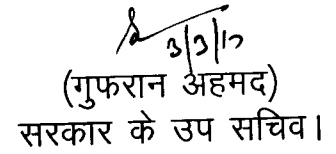 3/3/17
(गुफरान अहमद)
सरकार के उप सचिव।